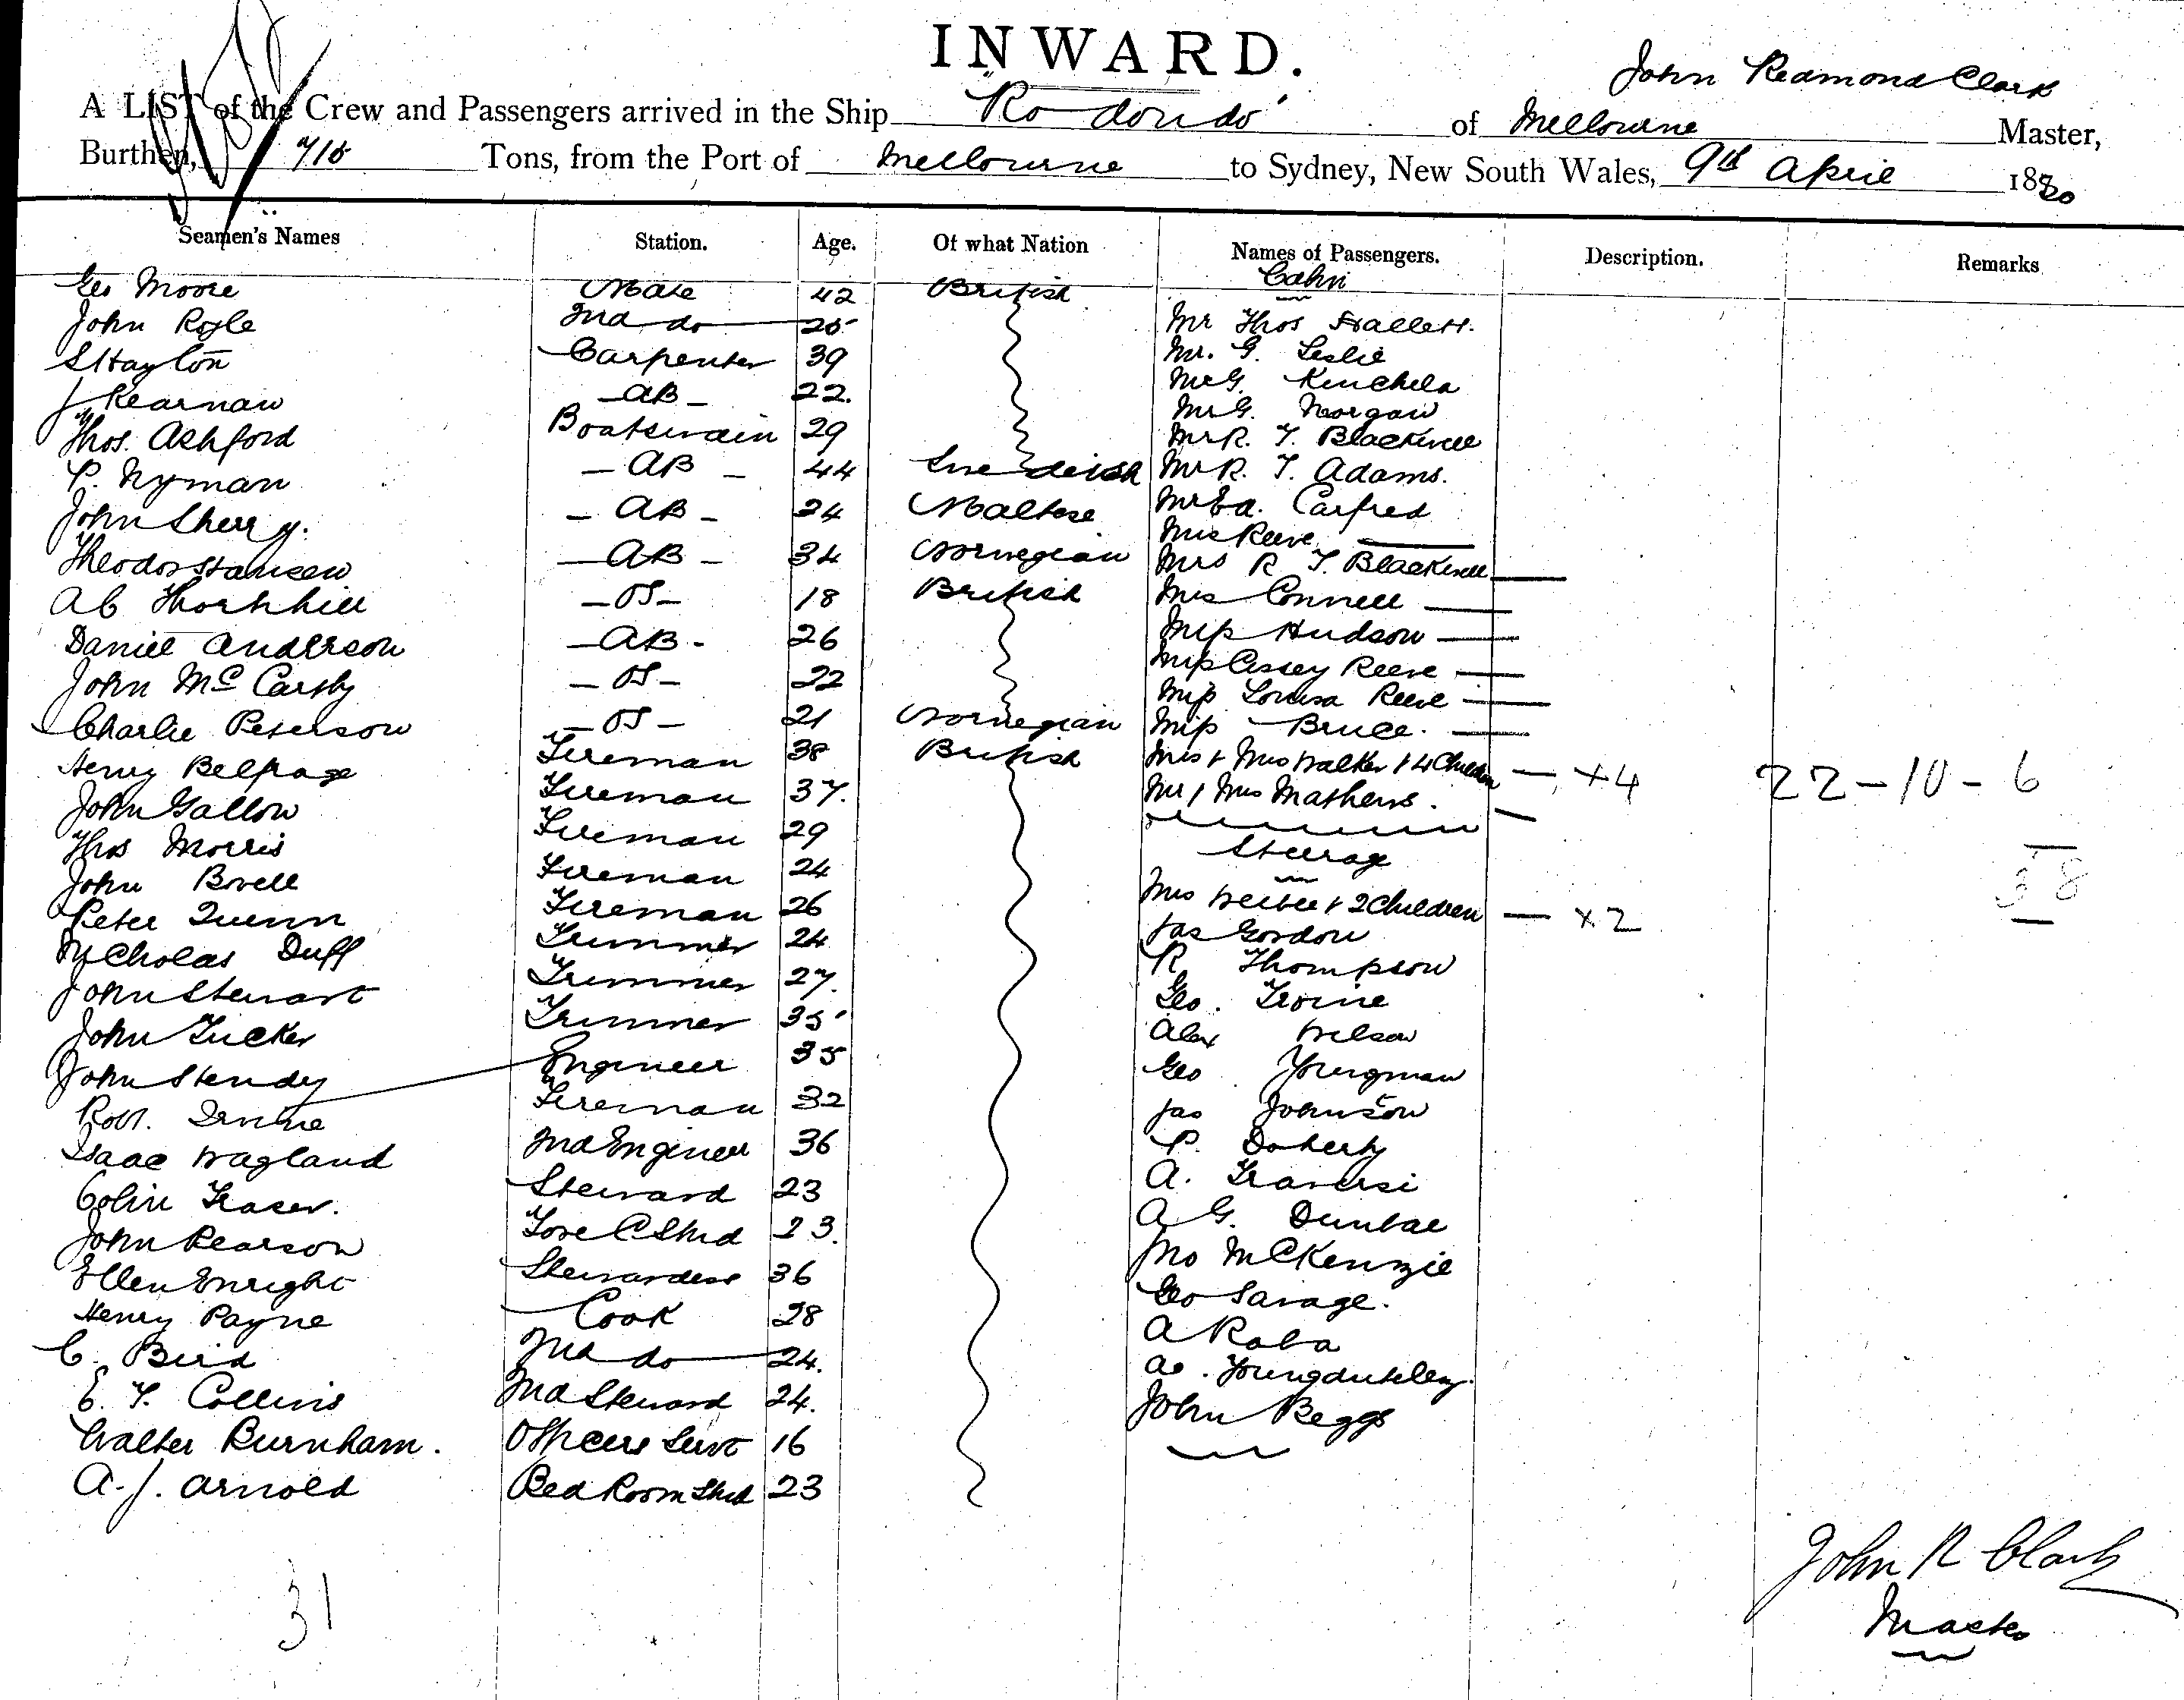 INWARD.
John Redmond Clark
A LIST of the Crew and Passengers arrived in the Ship "Rodondo" of Melbourne Master,
Burthen, 710 Tons, from the Port of Melbourne to Sydney, New South Wales, 9th April 1880
Seamen's Names Station. Age. Of what Nation Names of Passengers. Description. Remarks
Cabin
Geo Moore Mate 42 British
John Royle 2nd do 25 Mr Thos Hallett.
S Hayton Carpenter 39 Mr. G. Leslie
J Kearnan AB 22. Mr G. Kinchela
Thos. Ashford Boatswain 29 Mr G. Morgan
Mr R. T. Blackwell
P. Nyman AB 44 Swedish Mr R. T. Adams.
John Sherry. AB 24 Maltese Mr Ed. Carfred
Mrs Reeve
Theodor Hansen AB 34 Norwegian Mrs R T. Blackwell
Ab Thornhill OS 18 British Mrs Connell
Daniel Anderson AB 26 Miss Hudson
John McCarthy OS 22 Miss Cissey Reeve
Miss Louisa Reeve
Charlie Peterson OS 21 Norwegian Miss Bruce.
Henry Belfrage Fireman 38 British Mr & Mrs Walker & 4 Children — x4 22-10-6
John Gallow Fireman 37. Mr & Mrs Mathews.
Thos Morris Fireman 29 Steerage
38
John Bovell Fireman 24
Peter Quinn Fireman 26 Mrs & 2 Children — x2
Nicholas Duff Trimmer 24 Jas Gordon
John Stewart Trimmer 27. R Thompson
John Tucker Trimmer 35 Geo. Irvine
John Stendy Engineer 35 Alex Wilson
Robt. Irvine Fireman 32 Geo Youngman
Isaac Wagland 2nd Engineer 36 Jas Johnson
P. Doherty
Colin Fraser. Steward 23 A. Traversi
John Pearson Fore C Stwd 23. A G. Dunbar
Ellen Enright Stewardess 36 Jno McKenzie
Henry Payne Cook 28 Geo Savage.
C. Bird 2nd do 24. A Raba
E. T. Collins 2nd Steward 24. John Beggs
Walter Burnham. Officers Servt 16
A. J. Arnold Bed Room Stwd 23
31
John R Clark
Master